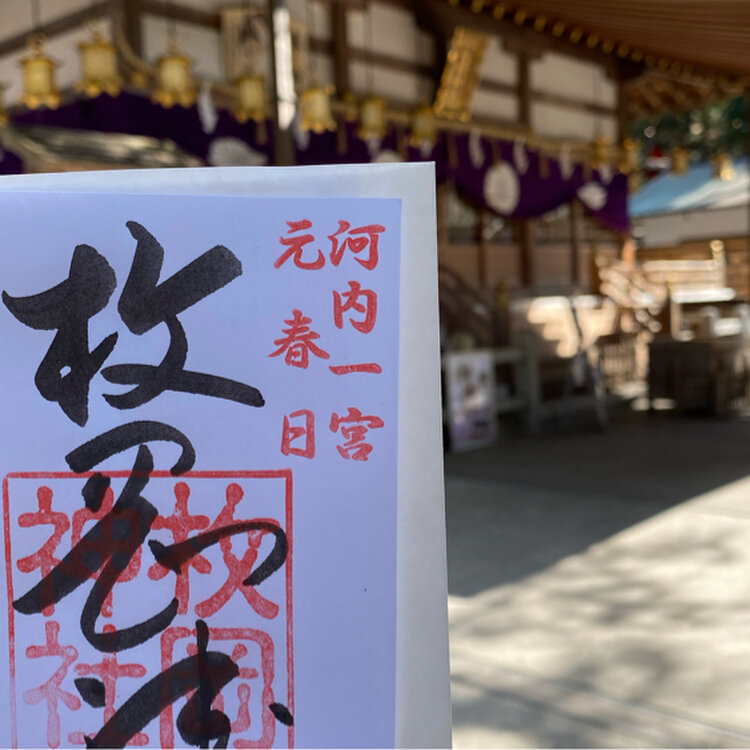 河内一宮
元春日
枚岡
枚岡
神社